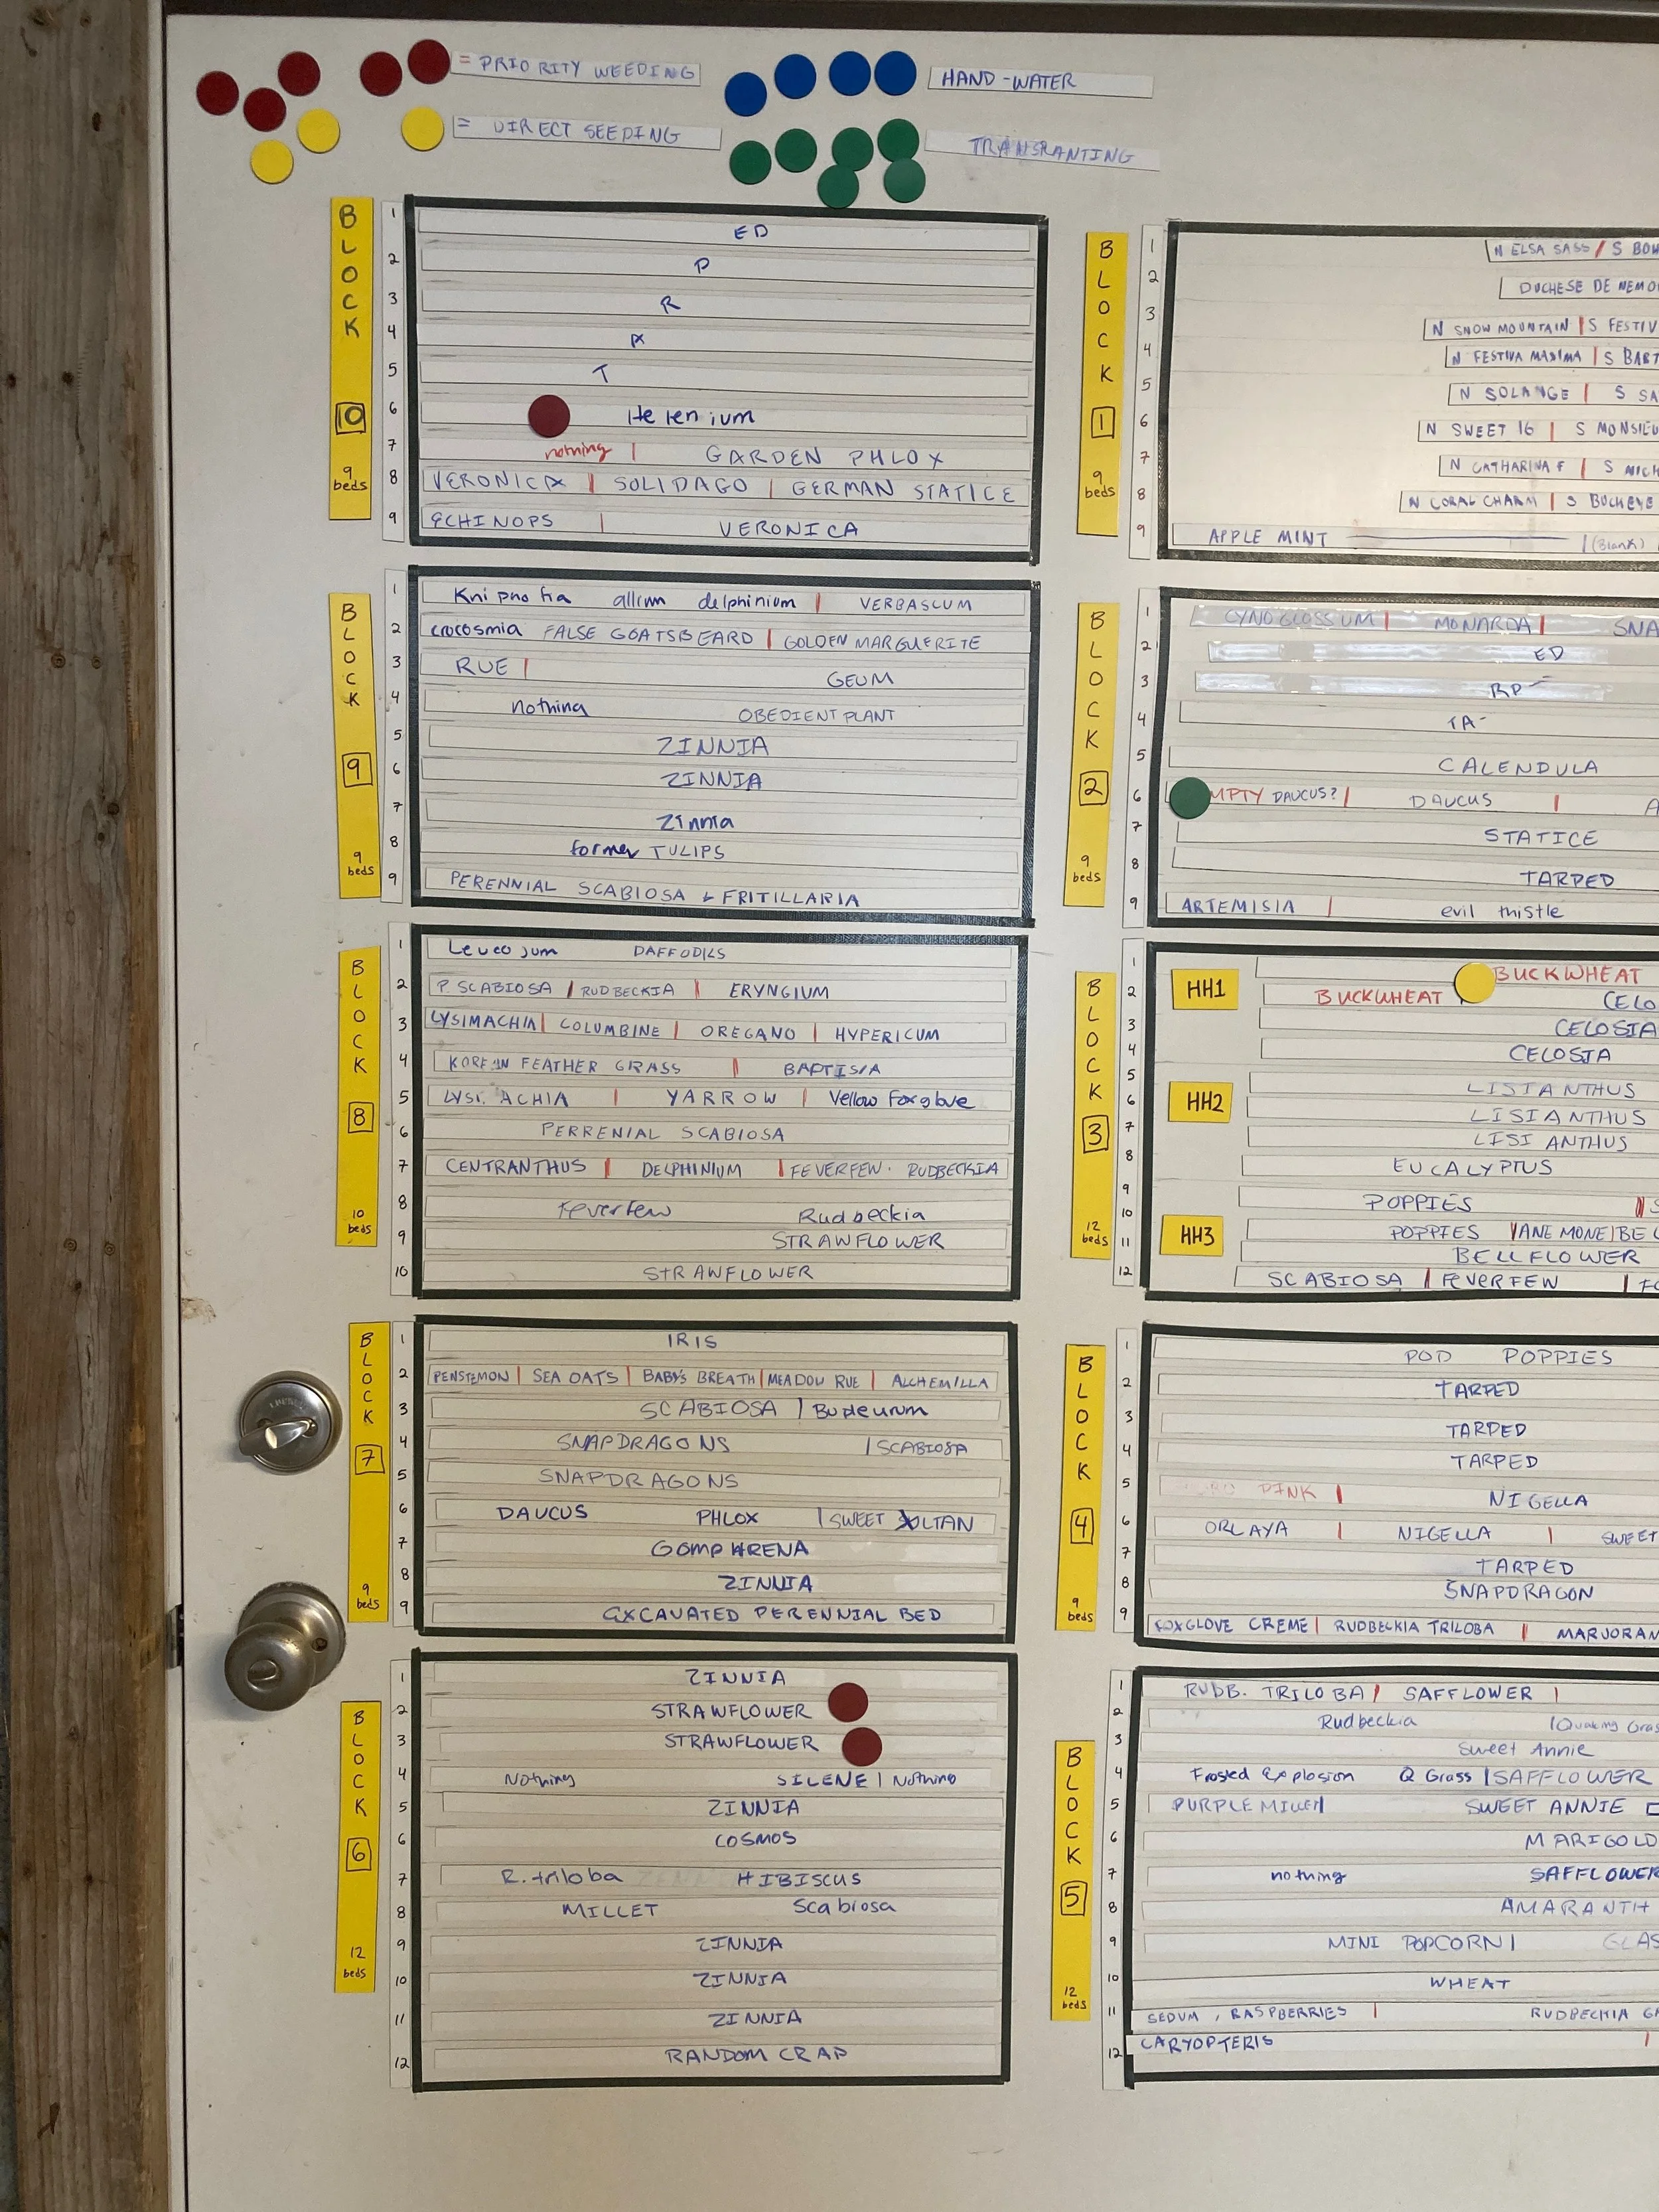 = PRIORITY WEEDING
= DIRECT SEEDING
HAND-WATER
BLOCK
10
9 beds
1 ED
2 P
3 R
4 A
5 T
6 Helenium
7 nothing | GARDEN PHLOX
8 VERONICA | SOLIDAGO | GERMAN STATICE
9 ECHINOPS | VERONICA
BLOCK
9
9 beds
1 Knipnofia allium delphinium | VERBASCUM
2 crocosmia FALSE GOATSBEARD | GOLDEN MARGUERITE
3 RUE | GEUM
4 nothing OBEDIENT PLANT
5 ZINNIA
6 ZINNIA
7 Zinnia
8 former TULIPS
9 PERENNIAL SCABIOSA & FRITILLARIA
BLOCK
8
10 beds
1 Leucojum DAFFODILS
2 P. SCABIOSA / RUDBECKIA | ERYNGIUM
3 LYSIMACHIA | COLUMBINE | OREGANO | HYPERICUM
4 FEATHER GRASS | BAPTISIA
5 ACHIA | YARROW | Yellow Foxglove
6 PERRENIAL SCABIOSA
7 CENTRANTHUS | DELPHINIUM | FEVERFEW · RUDBECKIA
8 Feverfew Rudbeckia
9 STRAWFLOWER
10 STRAWFLOWER
BLOCK
7
9 beds
1 IRIS
2 PENSTEMON | SEA OATS | BABY'S BREATH | MEADOW RUE | ALCHEMILLA
3 SCABIOSA | Bupleurum
4 SNAPDRAGONS | SCABIOSA
5 SNAPDRAGONS
6 DAUCUS PHLOX | SWEET SULTAN
7 GOMPHRENA
8 ZINNIA
9 EXCAVATED PERENNIAL BED
BLOCK
6
12 beds
1 ZINNIA
2 STRAWFLOWER
3 STRAWFLOWER
4 Nothing SILENE | Nothing
5 ZINNIA
6 COSMOS
7 R. triloba HIBISCUS
8 MILLET Scabiosa
9 ZINNIA
10 ZINNIA
11 ZINNIA
12 RANDOM CRAP
BLOCK
1
9 beds
1 N ELSA SASS / S
2 DUCHESE DE
3 N SNOW MOUNTAIN | S
4 N FESTIVA MAXIMA | S
5 N SOLANGE | S
6 N SWEET 16 | S
7 N CATHARINA F | S
8 N CORAL CHARM | S BUCKEYE
9 APPLE MINT | (Blank)
BLOCK
2
9 beds
1 CYNOGLOSSUM | MONARDA |
2 ED
3 RP
4 TA
5 CALENDULA
6 MPTY DAUCUS? | DAUCUS | A
7 STATICE
8 TARPED
9 ARTEMISIA | evil thistle
BLOCK
3
12 beds
HH1
HH2
HH3
1 BUCKWHEAT
2 BUCKWHEAT CELO
3 CELOSIA
4 CELOSIA
5 LISIANTHUS
6 LISIANTHUS
7 LISIANTHUS
8 EUCALYPTUS
9 POPPIES | S
10 POPPIES | ANEMONE |
11 BELLFLOWER
12 SCABIOSA | FEVERFEW |
BLOCK
4
9 beds
1 POD POPPIES
2 TARPED
3 TARPED
4 TARPED
5 PINK | NIGELLA
6 ORLAYA | NIGELLA | SWEET
7 TARPED
8 SNAPDRAGON
9 FOXGLOVE CREME | RUDBECKIA TRILOBA | MARJORAM
BLOCK
5
12 beds
1 RUDB. TRILOBA | SAFFLOWER |
2 Rudbeckia | Quaking Gras
3 Sweet Annie
4 Frosted Explosion Q Grass | SAFFLOWER
5 PURPLE MILLET | SWEET ANNIE
6 MARIGOLD
7 nothing SAFFLOWER
8 AMARANTH
9 MINI POPCORN | GLAS
10 WHEAT
11 SEDUM, RASPBERRIES | RUDBECKIA
12 CARYOPTERIS |